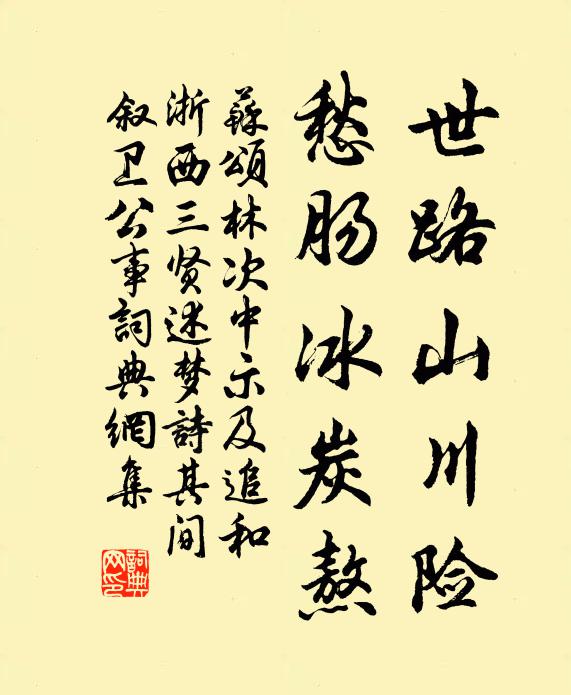 世路山川险
愁肠冰炭熬
蘇頌林次中示及追和
浙西三贤述梦詩其间
叙卫公事詞典網集
詞典
网印